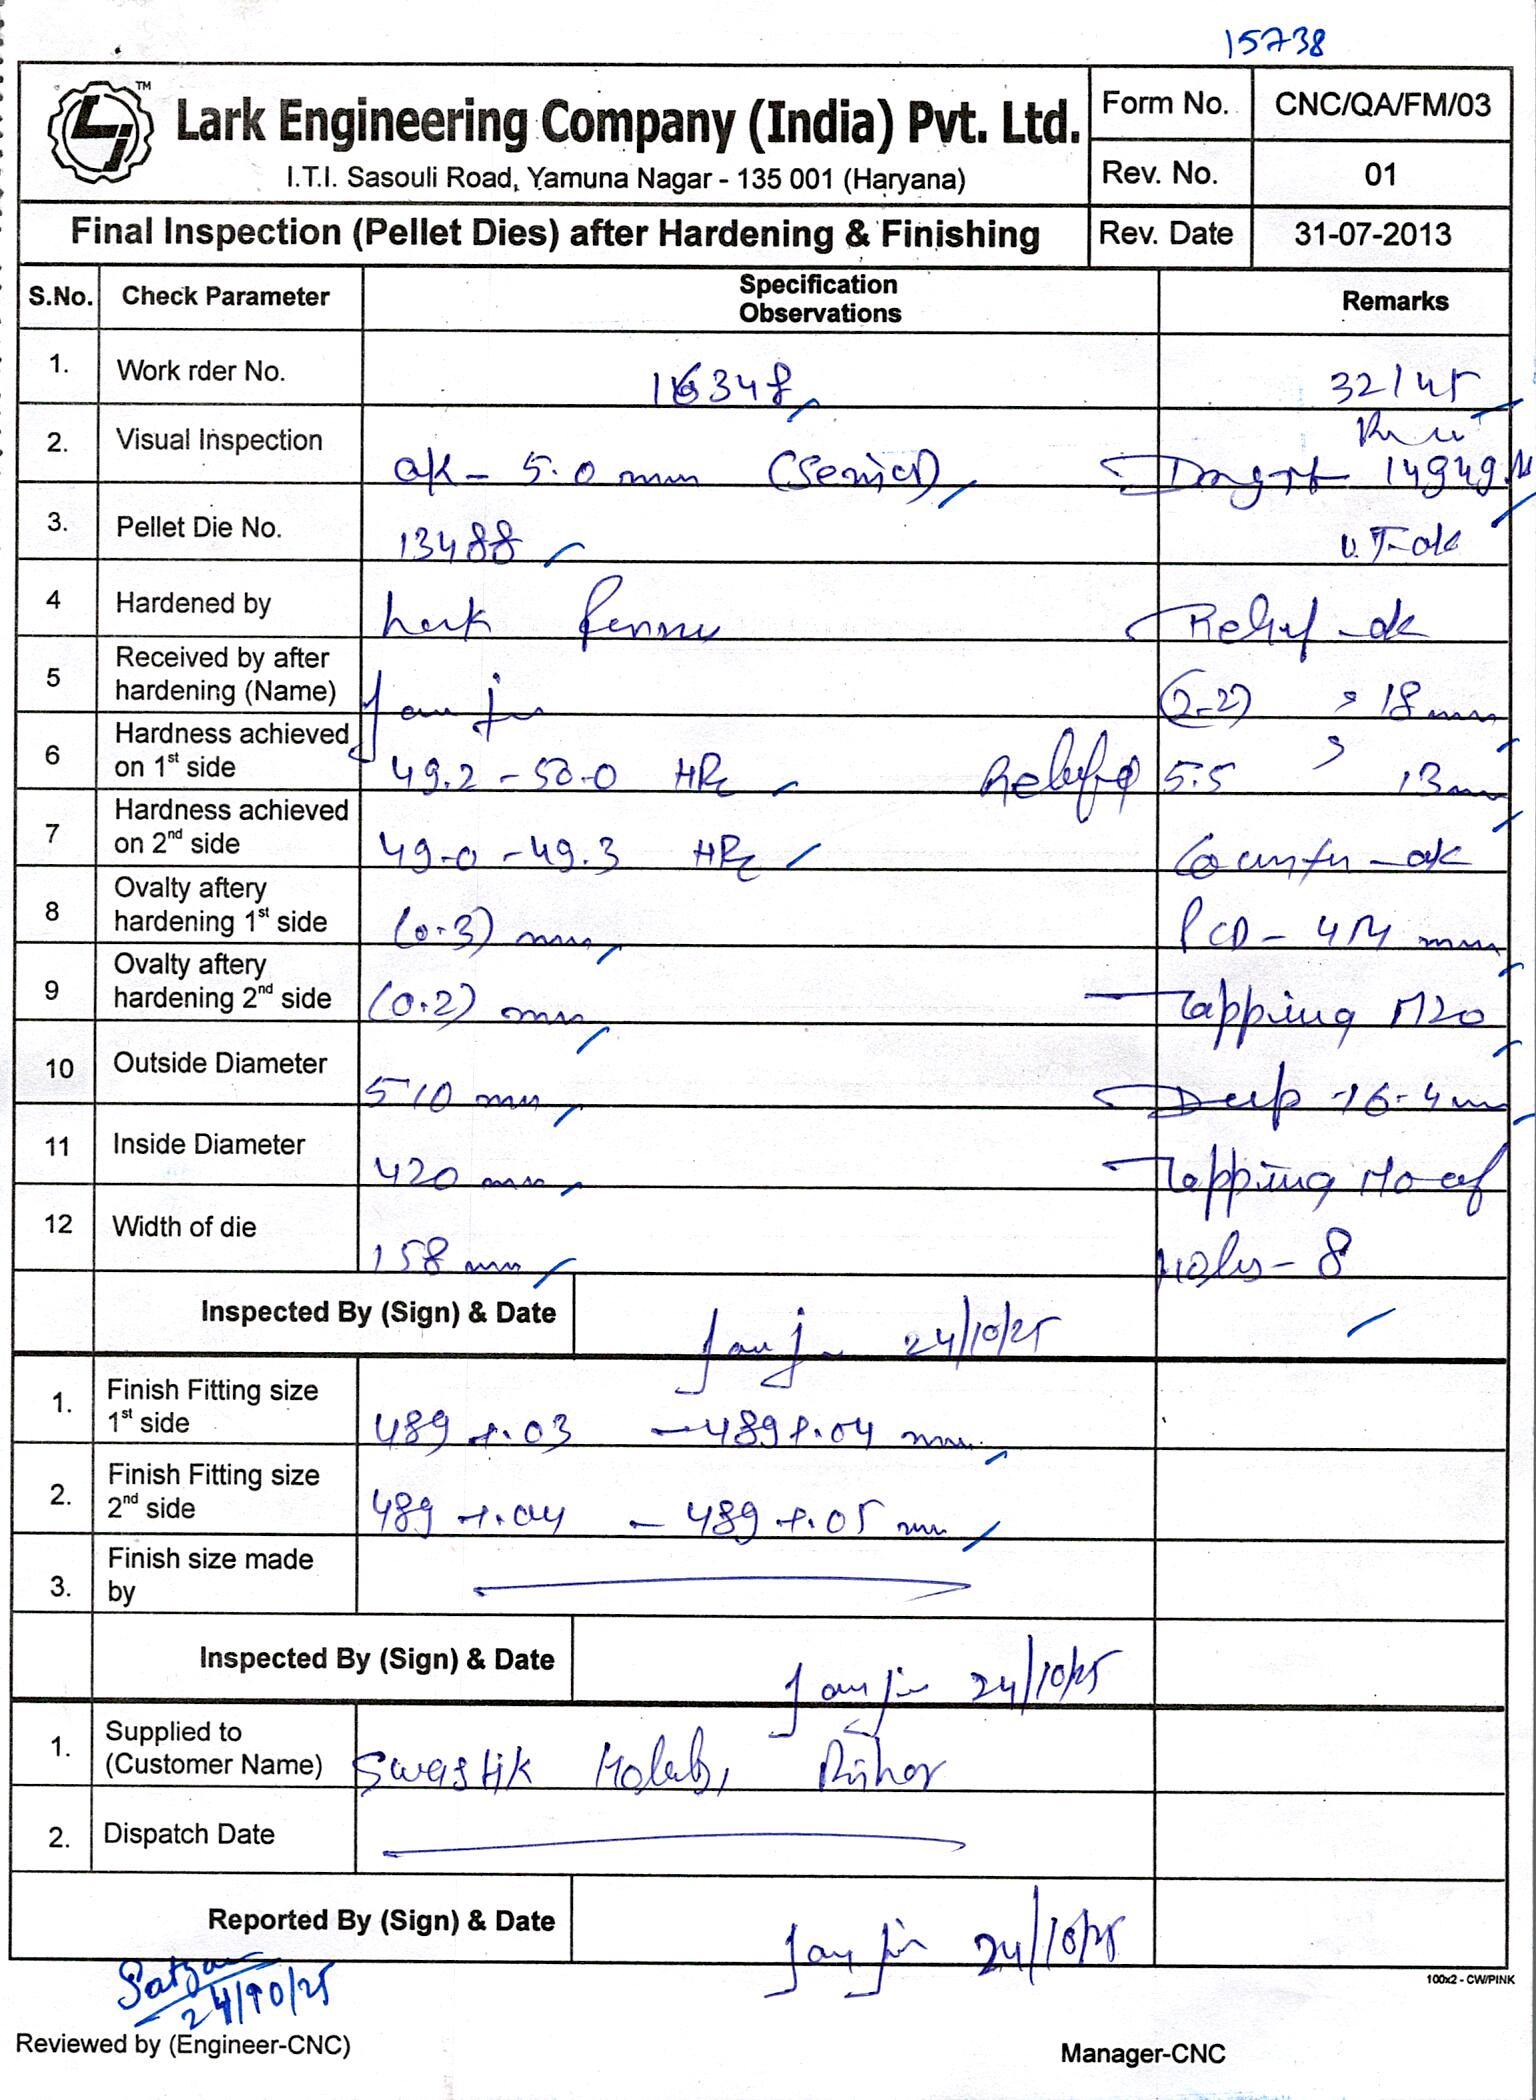 15738
TM
Lark Engineering Company (India) Pvt. Ltd.
I.T.I. Sasouli Road, Yamuna Nagar - 135 001 (Haryana)
Form No. CNC/QA/FM/03
Rev. No. 01
Final Inspection (Pellet Dies) after Hardening & Finishing
Rev. Date 31-07-2013
S.No. Check Parameter Specification Observations Remarks
1. Work rder No. 16348 32/45
2. Visual Inspection OK - 5.0 mm 14949.
3. Pellet Die No. 13488 U.T-ok
4 Hardened by Lark Relief - ok
5 Received by after
hardening (Name) (2-2) 18 mm
6 Hardness achieved
on 1st side 49.2 - 50.0 HRc Relief φ 5.5 13 mm
7 Hardness achieved
on 2nd side 49.0 - 49.3 HRc Counter - ok
8 Ovalty aftery
hardening 1st side (0.3) mm PCD - 454 mm
9 Ovalty aftery
hardening 2nd side (0.2) mm Tapping M20
10 Outside Diameter 510 mm Deep 16.4 mm
11 Inside Diameter 420 mm Tapping No of
12 Width of die 158 mm Holes - 8
Inspected By (Sign) & Date 24/10/25
1. Finish Fitting size
1st side 489 +.03 - 489 +.04 mm
2. Finish Fitting size
2nd side 489 +.04 - 489 +.05 mm
3. Finish size made
by
Inspected By (Sign) & Date 24/10/25
1. Supplied to
(Customer Name) Swastik
2. Dispatch Date
Reported By (Sign) & Date 24/10/25
100x2 - CW/PINK
24/10/25
Reviewed by (Engineer-CNC)
Manager-CNC